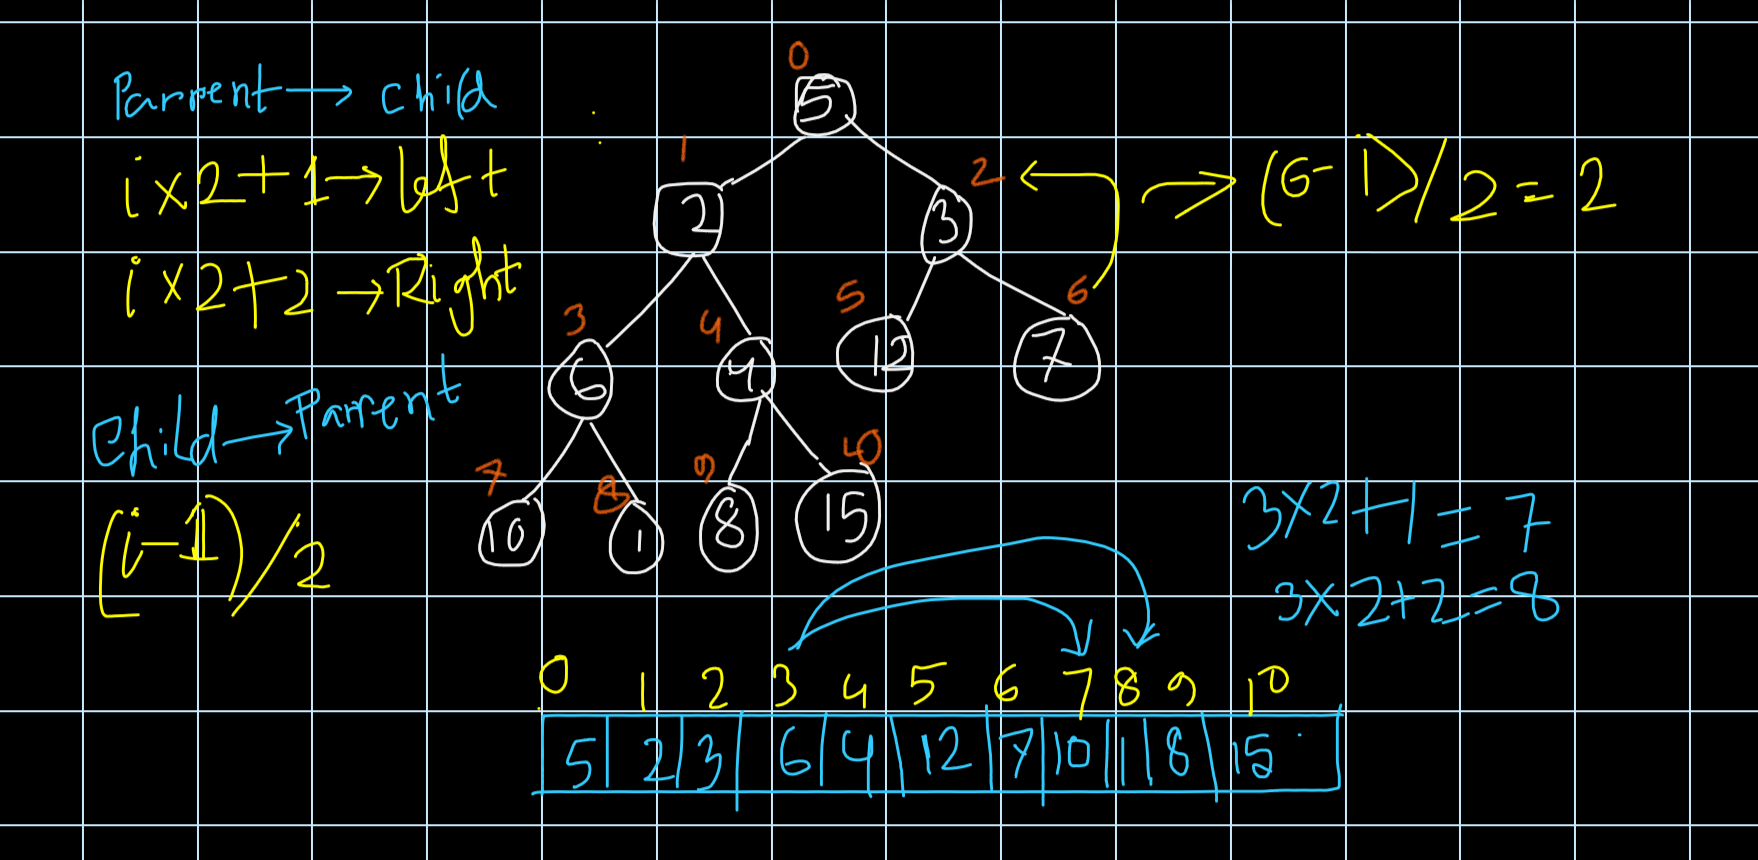 Parrent → child
i×2+1→left
i×2+2→Right
Child→Parrent
(i-1)/2
0
5
1
2
2
3
(6-1)/2=2
3
6
4
4
5
12
6
7
7
10
8
1
9
8
10
15
3×2+1=7
3×2+2=8
0 1 2 3 4 5 6 7 8 9 10
5 2 3 6 4 12 7 10 1 8 15